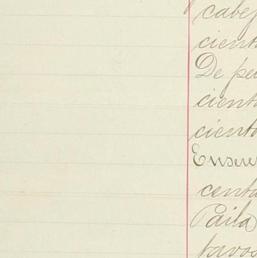 cabe
cient
De pe
cient
ciento
Enseres
centa
Paila
tavos